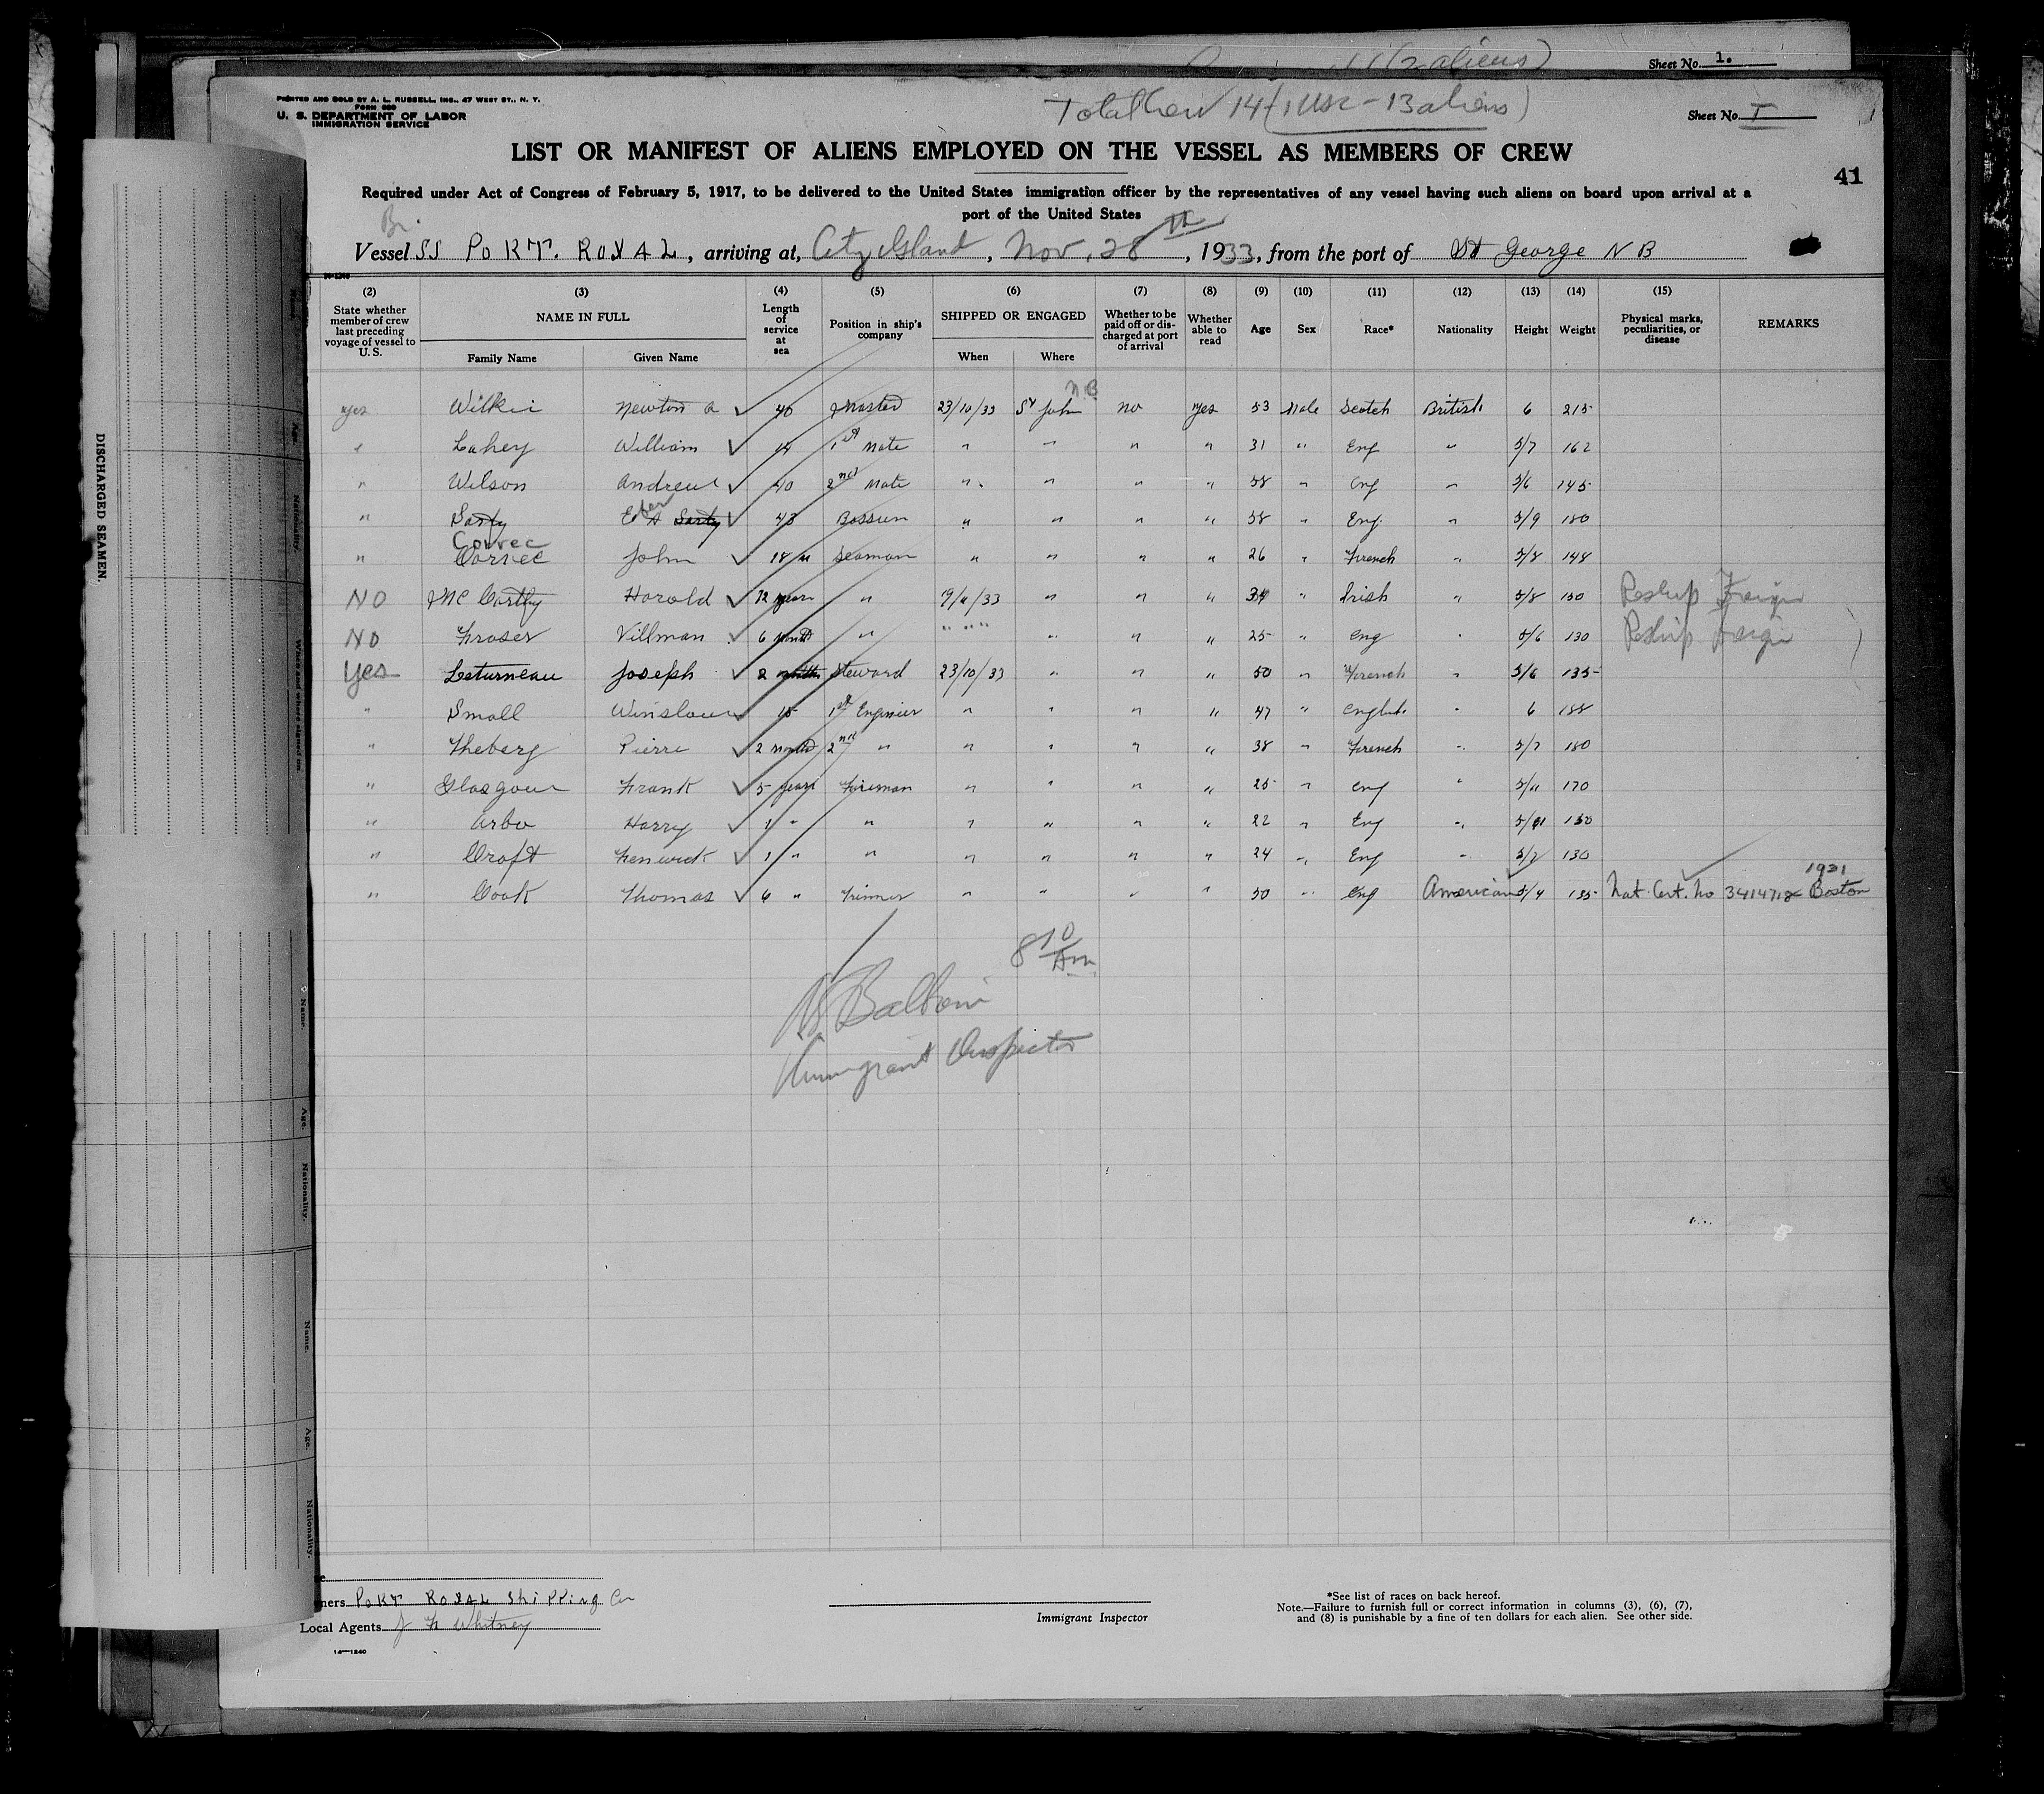 Sheet No. 1.
PRINTED AND SOLD BY A. L. RUSSELL, INC., 47 WEST ST., N. Y.
FORM 680
U. S. DEPARTMENT OF LABOR
IMMIGRATION SERVICE
Total Crew 14 (1 USC - 13 aliens)
Sheet No. I
LIST OR MANIFEST OF ALIENS EMPLOYED ON THE VESSEL AS MEMBERS OF CREW
41
Required under Act of Congress of February 5, 1917, to be delivered to the United States immigration officer by the representatives of any vessel having such aliens on board upon arrival at a
port of the United States
Br.
Vessel SS PORT. ROYAL, arriving at, City Island, Nov, 28th, 1933, from the port of St George N B
14-1240
(2) (3) (4) (5) (6) (7) (8) (9) (10) (11) (12) (13) (14) (15)
State whether member of crew last preceding voyage of vessel to U. S. NAME IN FULL Family Name Given Name Length of service at sea Position in ship's company SHIPPED OR ENGAGED When Where Whether to be paid off or discharged at port of arrival Whether able to read Age Sex Race* Nationality Height Weight Physical marks, peculiarities, or disease REMARKS
N.B
yes Wilkie Newton A 40 Master 23/10/33 St John no yes 53 Male Scotch British 6 215
" Lahey William 14 1st Mate " " " " 31 " Eng " 5/7 162
" Wilson Andrew 40 2nd Mate " " " " 58 " Eng " 5/6 145
" Sarty Eber A Sarty 43 Bossun " " " " 58 " Eng. " 5/9 180
Correc
" Correc John 18 m Seaman " " " " 26 " French " 5/8 148
NO McCarthy Harold 12 years " 19/11/33 " " " 34 " Irish " 5/8 150 Reship Foreign
NO Fraser Villman 6 months " " " " " " " 25 " Eng " 5/6 130 Reship Foreign
Yes Leturneau Joseph 2 months Steward 23/10/33 " " " 50 " French " 5/6 135
" Small Winslow 15 1st Engineer " " " " 47 " English " 6 188
" Theberg Pierre 2 months 2nd " " " " " 38 " French " 5/7 180
" Glasgow Frank 5 years Fireman " " " " 25 " Eng " 5/11 170
" Arbo Harry 1 " " " " " " 22 " Eng " 150
" Croft Fenwick 1 " " " " " " 24 " Eng " 5/7 130
1931
" Cook Thomas 6 " Trimmer " " " " 50 " Eng American 5/4 135 Nat. Cert. No 3414718 Boston
8 10 Am
Baldwin
Immigrant Inspector
DISCHARGED SEAMEN.
Name.
Age.
Nationality.
Name.
Age.
Nationality.
ners PORT ROYAL Shipping Co
Local Agents J H Whitney
14-1240
Immigrant Inspector
*See list of races on back hereof.
Note.—Failure to furnish full or correct information in columns (3), (6), (7),
and (8) is punishable by a fine of ten dollars for each alien. See other side.